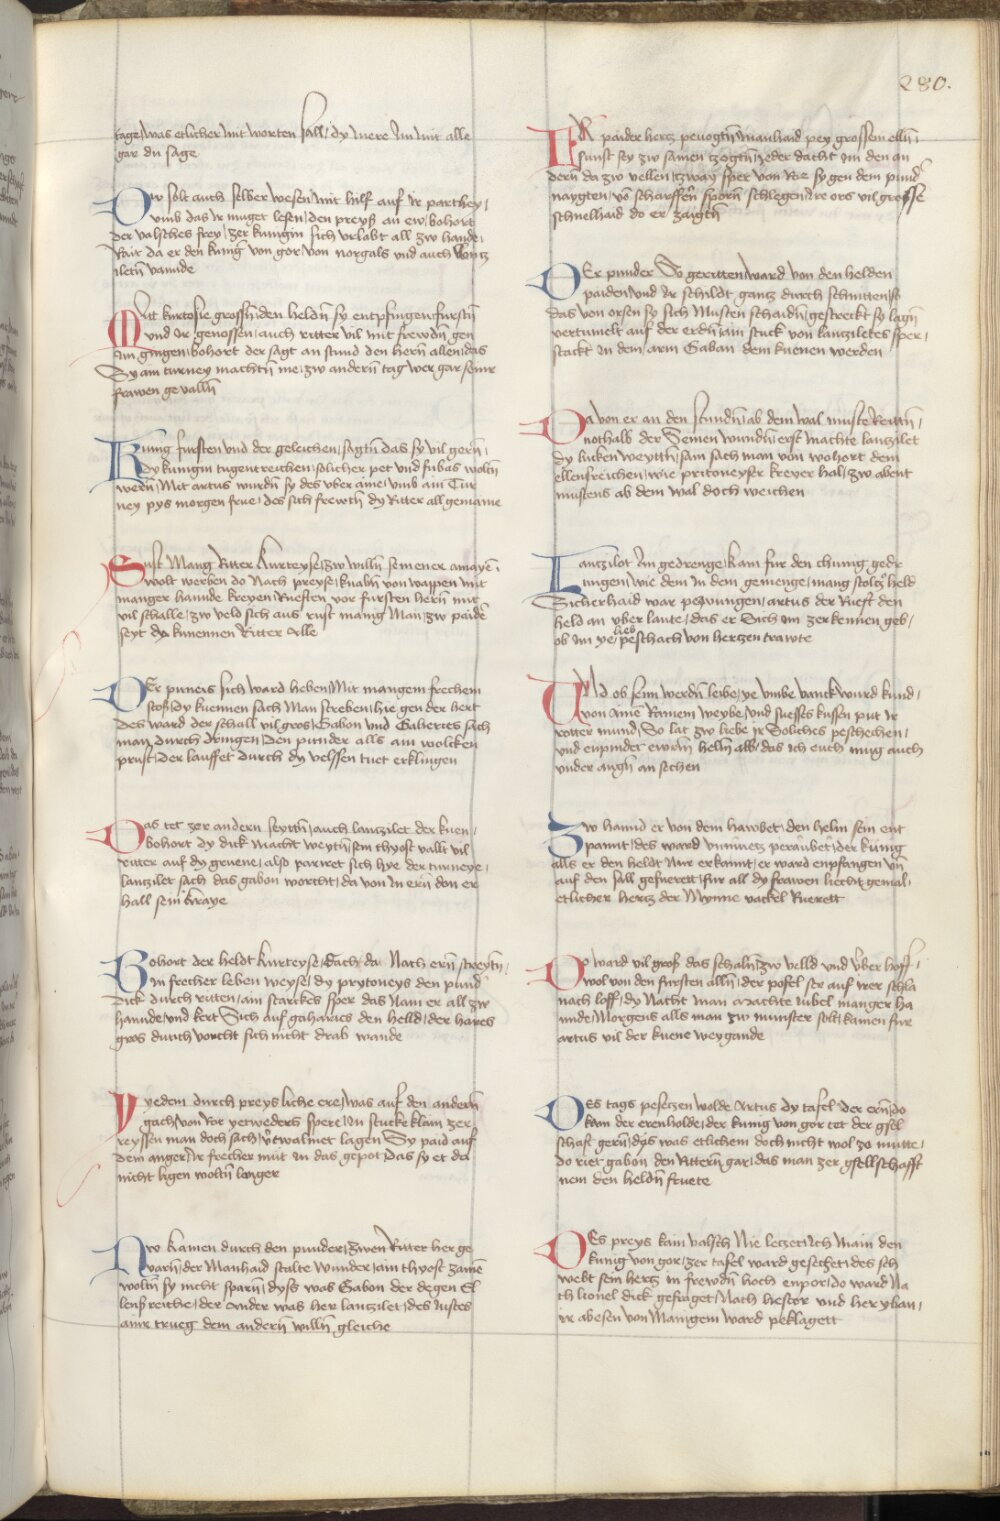 280.
tage was etlicher mit worten fall / dy mere Im mit alle
gar du sage
Dw solt auch selber wesen / mit hilf auf Ir parthey /
vmb das Ir muget lesen / den preyß an ew / bohort
der valsches frey / zer kunigin sich vrlabt all zw hande /
Rait da er den kunig von gor / von norgals vnd auch
iletn vannde
Mit kurtosie grossn / den heldn sy entpfingen / furstn
vnd Ir genossen / auch ritter vil mit frewdn gen
Im gingen / bohort der sagt an stund den hern allen / das
Sy am turney machtn me / zw andern tag wer gar seinr
frawen gevalln
Kunig fursten vnd der geleichen / sagtn das sy vil gern /
dy kunigin tugentreichen / solicher pet vnd fubas woltn
wern / Mit artus wurdn sy des vber aine / vmb ain Tur
ney pys morgen frue / des sich frewtn dy Ritter all gemaine
Sust Mang Ritter kurteyse / zw willn seinener amayen
wolt werben do Nach preyse / knabn von wappen mit
manger hannde kreyen Ruesten vor fursten hern mit
vil schalle / zw veld sich aus rust manig Man / zw paide
seyt dy kunennen Ritter Alle
Der puneis sich ward heben / Mit mangem frechem
stoß / dy kuennen sach Man streben / hie gen der hert
des ward der schall vil gros / Gabon vnd Galiertes sach
man durch dringen / Den punder alls am wolcken
prust / Der lauffet durch dy velssen tuet erklingen
Das tet zer andern seyttn / auch lantzilet der kuen /
bohort dy dick macht weytn / sein thyost vallt vil
ritter auf dy gruene / also parrret sich hye der turneye /
lantzilet sach das gabon worcht / da von In ern don er
hall sein kraye
Bohort der heldt kurteyse / dach da Nach ern streytn /
In frecher leben weyse / dy prytoneys den pund
dick durch ritten / ain starckes sper das Nam er all zw
hannde / vnd kert Sich auf gaharies den helld / der hares
gros durch vorcht sich nicht drab wande
Yedem durch preysliche ere / was auf den andern
gach / von Rot yetweders spere / In stuckr klain zer
reyssen man doch sach / vtwalmet lagen Sy paid auf
dem anger / Ir frecher mut In das gepot / das sy et da
nicht ligen woltn langer
Nw kamen durch den punder / zwen Ritter her ge
varn / der Manhaid stalte wunder / ain thyost zame
woltn sy nicht sparn / dyss was Gabon der degen El
lenß reiche / der Ander was her lantzilet / des Iustes
ainr trueg dem andern willn gleiche
Ir paider hertz pewogtn / Manhaid pey grossem elln
sunst sy zw samen tzogtn / yeder dacht Im den an
dern da zw vellen / zway sper von Roe sy gen dem pund
naygten / vo scharffen sporn schlegen / dre ors vil grosse
schnelhaid do er zaigtn
Der punder So geritten / ward von den helden
paiden / vnd Ir schildt gantz durch schnitten / so
das von orsen sy sich Musten schaidn / gestreckt sy lagn
vertumelt auf der erdn / ain stuck von lanziletes sper /
stackt In dem arm Gaban dem kuenen werden
Da von er an den stundn / ab dem wal muste Reittn /
nothalb der Seinen wundn / erst machte lanzilet
dy lucken weyttn / sam sach man von wohort dem
ellensreichen / wie pritoneyser kreyer hal / zw abent
mustens ab dem wal doch weichen
Lantzilot Im gedrenge / kam fur den chunig gedr
ungen / wie dem In dem gemenge / mang stoltz held
Sicherhaid war pezwungen / artus der Rueft den
held an vber laute / das er Sich im zerkennen geb /
ob im ye lieb peschach von hertzen trawte
Vnd ob seim werdn leibe / ye vmbe vanck wurd kund /
von aime Rainem weybe / vnd suesses kussen put Ir
rotter mund / So lat zw liebe Ir Soliches peschechen /
vnd enpindet ewrn helm alb / das ich euch mug auch
vnder augn an sechen
Zw hannd er von dem hawbet / den helm sein ent
spannt / des ward vnmutz peraubet / der kunig
alls er den heldt Nur erkannt / er ward enpfangen vn
auf den sall gefuerett / fur all dy frawen liecht gemal /
etlicher hertz der Mynne vackel Ruerett
Do ward vil groß das schaln / zw velld vnd vber hoff /
wol von den fursten alln / der pofel ser auf irer schla
nach loff / dy Nacht man Machte iubel manger ha
nnde / Morgens alls man zw munster solt / kamen fure
artus vil der kuene weygande
Des tags pesetzen wolde Artus dy tafel der ern / do
kam der erenholde / der kunig von gor tet der gsel
schaft gern / dys was etlichem doch nicht wol zo mutte /
do riet gabon den Rittern gar / das man zer gsellschafft
nem den heldn fruete
Des preys kain valsch Nie letzet / Ich Main den
kunig von gor / zer tafel ward gesetzet / des sch
webt sein hertz in frewdn hoch enpor / do ward Na
ch lionel dick gefraget / Nach hestor vnd her yban /
ir abesen von Manigem ward peklagett